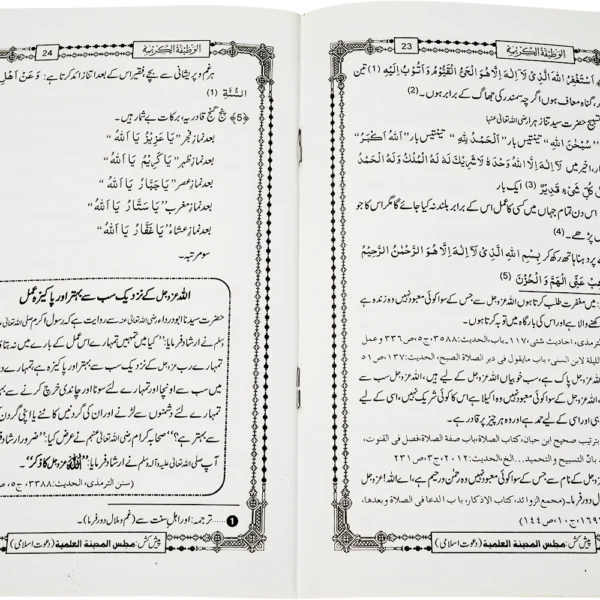 الوظیفۃ الکریمۃ
23
اَسْتَغْفِرُ اللہَ الَّذِیْ لَآ اِلٰہَ اِلَّا ھُوَ الْحَیُّ الْقَیُّوْمُ وَاَتُوْبُ اِلَیْہِ (1) تین
، گناہ معاف ہوں اگرچہ سمندر کی جھاگ کے برابر ہوں۔ (2)
تسبیح حضرت سیدتنا زہرا رضی اللہ تعالیٰ عنہا
"سُبْحٰنَ اللہِ" تینتیس بار "اَلْحَمْدُ لِلّٰہِ" تینتیس بار "اَللہُ اَکْبَرُ"
بار، اخیر میں لَآ اِلٰہَ اِلَّا اللہُ وَحْدَہٗ لَا شَرِیْکَ لَہٗ لَہُ الْمُلْکُ وَلَہُ الْحَمْدُ
کُلِّ شَیْءٍ قَدِیْرٌ (3) ایک بار
اس دن تمام جہاں میں کسی کا عمل اس کے برابر بلند نہ کیا جائے گا مگر اس کا جو
پڑھے۔ (4)
پر داہنا ہاتھ رکھ کر بِسْمِ اللہِ الَّذِیْ لَآ اِلٰہَ اِلَّا ھُوَ الرَّحْمٰنُ الرَّحِیْمُ
عَنِّی الْھَمَّ وَ الْحُزْنَ (5)
میں مغفرت طلب کرتا ہوں اللہ عزوجل سے جس کے سوا کوئی معبود نہیں وہ زندہ ہے
والا ہے اور اس کی بارگاہ میں توبہ کرتا ہوں۔
ترمذی، احادیث شتی، ١١٧۔ باب، الحدیث: ٣٥٨٨، ج٥، ص٣٣٦ وعمل
اللیلۃ لابن السنی، باب مایقول فی دبر الصلاۃ الصبح، الحدیث: ١٣٧، ص ٥١
عزوجل پاک ہے، سب خوبیاں اللہ عزوجل کے لیے ہیں، اللہ عزوجل سب سے
اللہ عزوجل کے سوا کوئی معبود نہیں وہ اکیلا ہے اس کا کوئی شریک نہیں، اسی کے لیے
اور اسی کے لیے حمد ہے اور وہ ہر چیز پر قادر ہے۔
بترتیب صحیح ابن حبان، کتاب الصلاۃ، باب صفۃ الصلاۃ، فصل فی القنوت،
بانّ التسبیح و التحمید... الخ، الحدیث: ٢٠١٢، ج٣، ص ٢٣١
عزوجل کے نام سے جس کے سوا کوئی معبود نہیں وہ رحمٰن و رحیم ہے، اے اللہ عزوجل
دور فرما۔ (مجمع الزوائد، کتاب الاذکار، باب الدعا فی الصلاۃ و بعدھا،
ج١٠، ص ١٤٤)
پیش کش: مجلس المدینۃ العلمیۃ (دعوت اسلامی)
الوظیفۃ الکریمۃ
24
ہر غم و پریشانی سے بچے فقیر اس کے بعد اتنا زائد کرتا ہے: وَ عَنْ اَھْلِ
السُّنَّۃِ (1)
﴿5﴾ پنج گنج قادریہ، برکات بے شمار ہیں۔
بعد نماز فجر "یَا عَزِیْزُ یَا اَللہُ"
بعد نماز ظہر "یَا کَرِیْمُ یَا اَللہُ"
بعد نماز عصر "یَا جَبَّارُ یَا اَللہُ"
بعد نماز مغرب "یَا سَتَّارُ یَا اَللہُ"
بعد نماز عشاء "یَا غَفَّارُ یَا اَللہُ"
سو مرتبہ۔
اللہ عزوجل کے نزدیک سب سے بہتر اور پاکیزہ عمل
حضرت سیدنا ابو درداء رضی اللہ تعالیٰ عنہ سے روایت ہے کہ رسول اکرم صلی اللہ تعالیٰ
وسلم نے ارشاد فرمایا: "کیا میں تمہیں تمہارے اس عمل کے بارے میں نہ بتا
تمہارے رب عزوجل کے نزدیک سب سے بہتر اور پاکیزہ ہے، تمہارے
میں سب سے اونچا اور تمہارے لئے سونا اور چاندی خرچ کرنے سے بہتر
تمہارے لئے دشمنوں سے لڑنے اور ان کی گردنیں کاٹنے یا اپنی گردن
سے بہتر ہے؟" صحابہ کرام رضی اللہ تعالیٰ عنہم نے عرض کیا: "ضرور ارشاد
آپ صلی اللہ تعالیٰ علیہ واٰلہ وسلم نے ارشاد فرمایا: "اللہ عزوجل کا ذکر"۔
(سنن الترمذی، الحدیث: ٣٣٨٨، ج٥، ص
1 ..... ترجمہ: اور اہل سنت سے (غم و ملال دور فرما)۔
پیش کش: مجلس المدینۃ العلمیۃ (دعوت اسلامی)